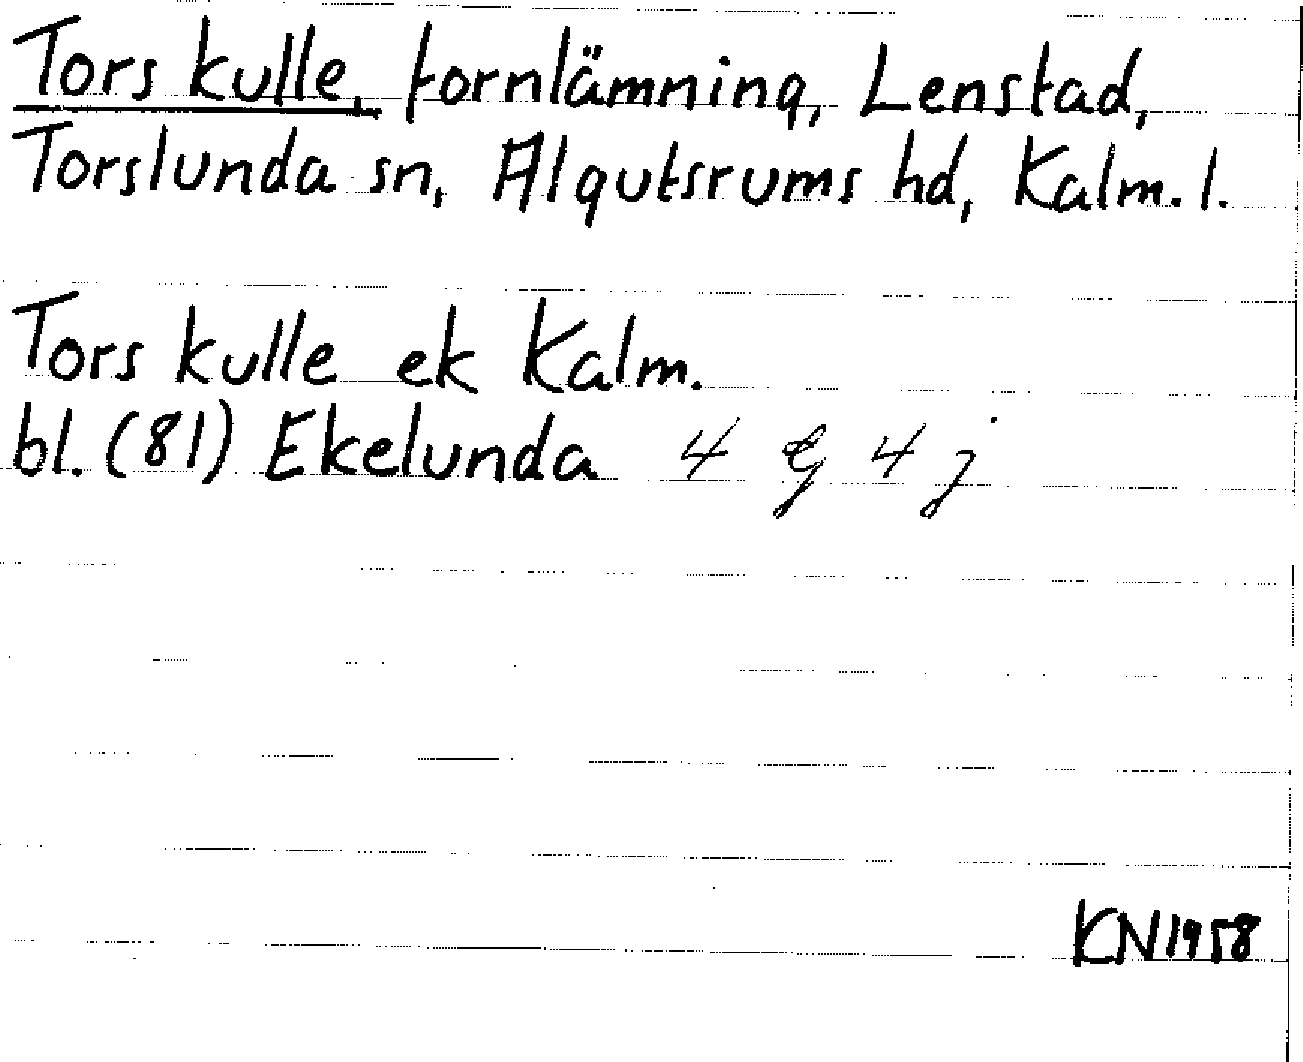 Tors kulle, fornlämning, Lenstad,
Torslunda sn, Algutsrums hd, Kalm. l.
Tors kulle ek Kalm.
bl. (81) Ekelunda 4 G 4 j
KN 1958